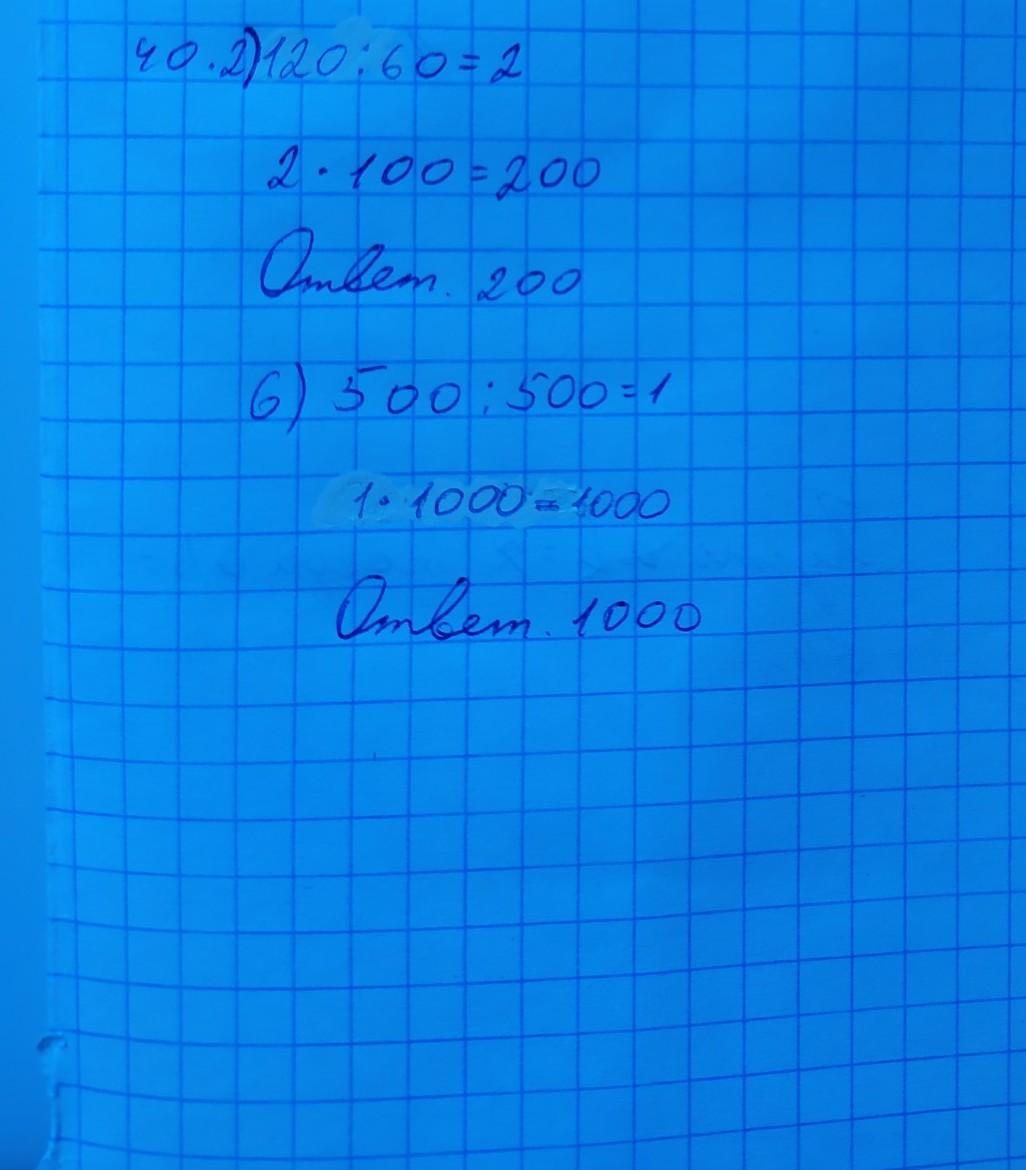 40.2)120:60=2
2·100=200
Ответ. 200
6) 500:500=1
1·1000=1000
Ответ. 1000